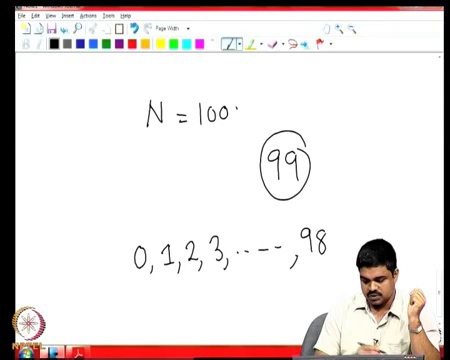 File Edit View Insert Actions Tools Help
Page Width
N = 100.
99
0, 1, 2, 3, ..---, 98